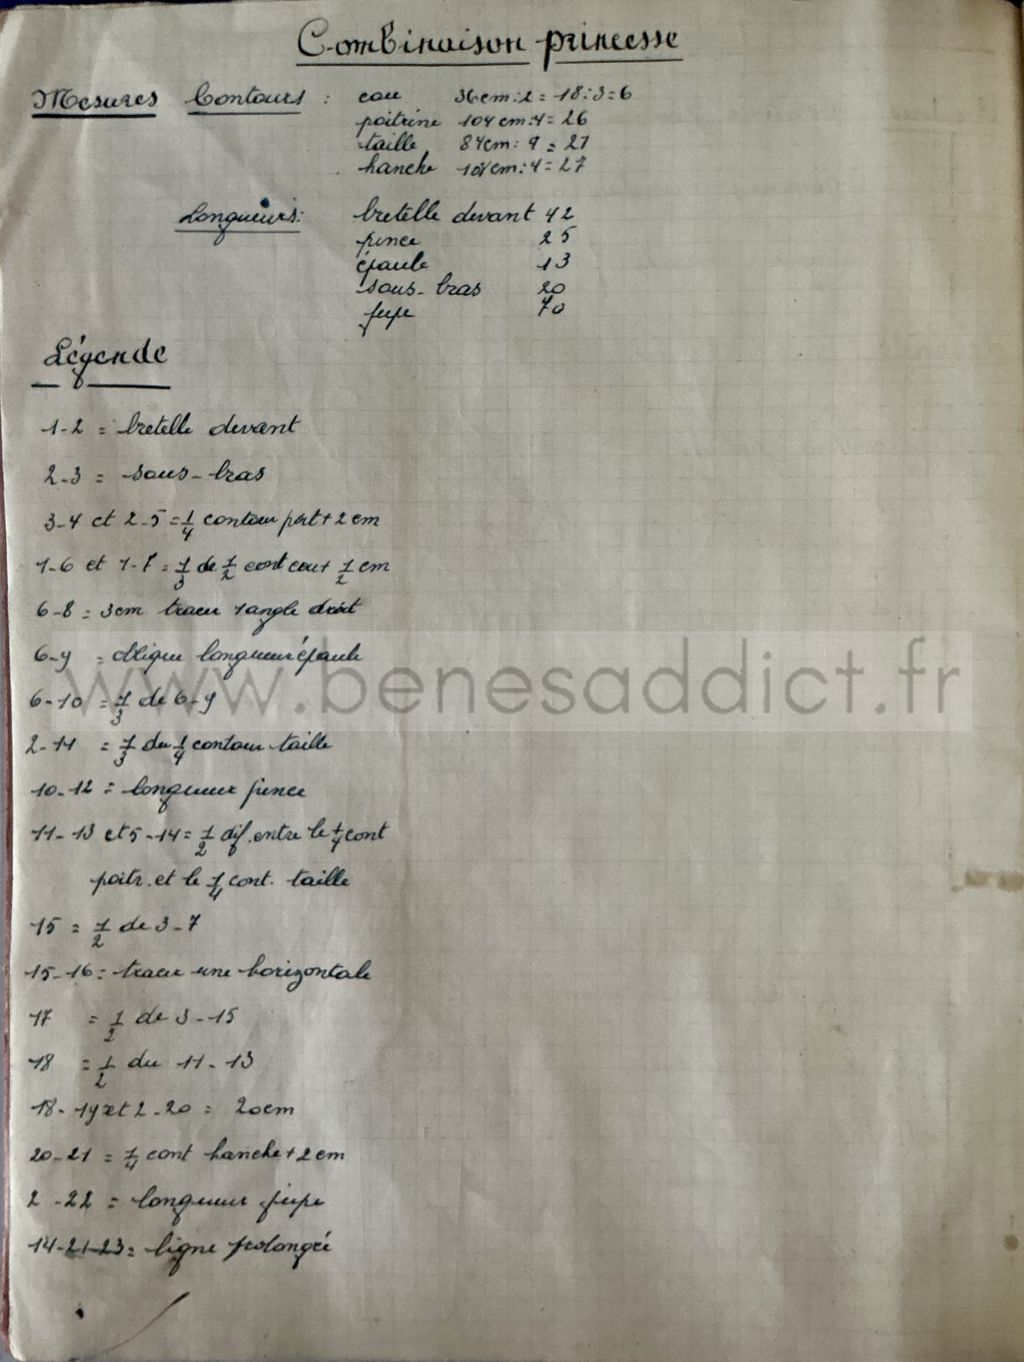 Combinaison princesse
Mesures Contours : cou 36cm:2 = 18:3=6
poitrine 104cm:4= 26
taille 84cm: 4 = 21
hanche 108cm:4=27
Longueurs: bretelle devant 42
pince 25
épaule 13
sous-bras 20
jupe 70
Légende
1-2 = bretelle devant
2-3 = sous-bras
3-4 et 2-5 = 1/4 contour poit+2cm
1-6 et 1-7 = 1/3 de 1/2 cont cou+ 1/2 cm
6-8 = 3cm tracer 1 angle droit
6-9 = oblique longueur épaule
www.benesaddict.fr
6-10 = 1/3 de 6-9
2-11 = 1/3 du 1/4 contour taille
10-12 = longueur pince
11-13 et 5-14= 1/2 dif. entre le 1/4 cont
poitr. et le 1/4 cont. taille
15 = 1/2 de 3-7
15-16= tracer une horizontale
17 = 1/2 de 3-15
18 = 1/2 du 11-13
18-19 et 2-20 = 20cm
20-21 = 1/4 cont hanche+2cm
2-22 = longueur jupe
14-21-23= ligne prolongée